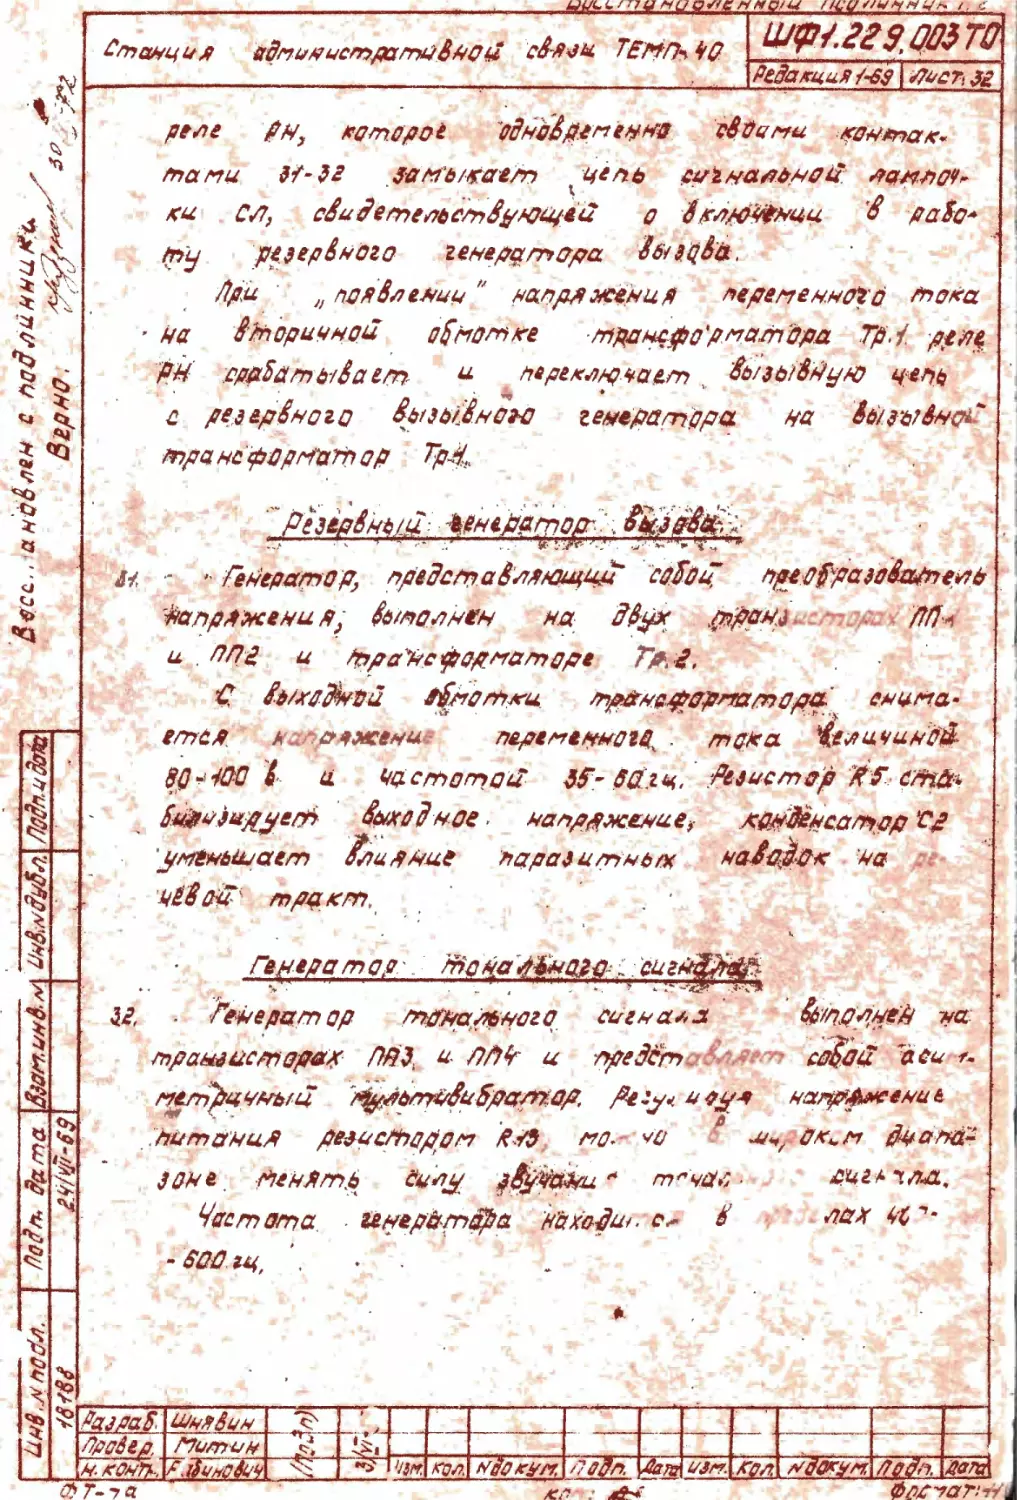 Станция административной связи ТЕМП-40
ШФ1.229.003 ТО
Редакция 1-69 Лист. 32
реле РН, которое одновременно своими контак-
тами 31-32 замыкает цепь сигнальной лампоч-
ки СЛ, свидетельствующей о включении в рабо-
ту резервного генератора вызова.
При „появлении" напряжения переменного тока
на вторичной обмотке трансформатора Тр.1 реле
РН срабатывает и переключает вызывную цепь
с резервного вызывного генератора на вызывной
трансформатор Тр1.
Резервный генератор вызова.
Генератор, представляющий собой преобразователь
напряжения, выполнен на двух транзисторах ПП1
и ПП2 и трансформаторе Тр.2.
С выходной обмотки трансформатора снима-
ется напряжение переменного тока величиной
80-100 в и частотой 35-60 гц. Резистор R5 ста-
билизирует выходное напряжение, конденсатор С2
уменьшает влияние паразитных наводок на ре-
чевой тракт.
Генератор тонального сигнала.
32. Генератор тонального сигнала выполнен на
транзисторах ПП3 и ПП4 и представляет собой асим-
метричный мультивибратор. Регулируя напряжение
питания резистором R13 можно в широком диапа-
зоне менять силу звучания сигнала.
Частота генератора находится в пределах
- 600 гц.
Восстановлен с подлинника
Верно.
Подп. и дата
Инв. № дубл.
Взам. инв. №
Подп. дата 24/VII-69
Инв. № подл. 18188
Разраб. Шнявин
Провер. Митин
Н. контр.
Изм. Кол. № докум. Подп. Дата Изм. Кол. № докум. Подп. Дата
ФТ-7а Формат: